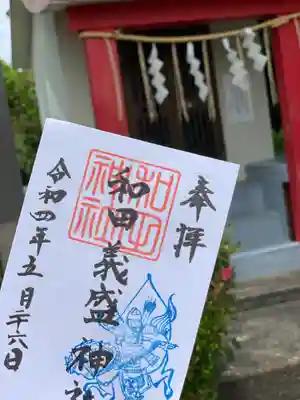 奉拝
和田義盛神社
令和四年五月二十六日